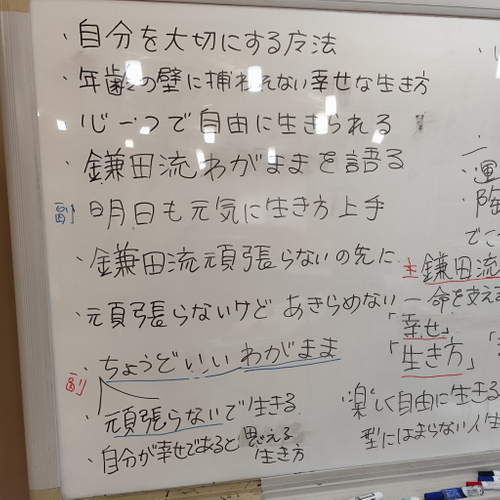 ・自分を大切にする方法
・年齢の壁に捕われない幸せな生き方
・心一つで自由に生きられる
・鎌田流わがままを語る
副 明日も元気に生き方上手
・鎌田流頑張らないの先に
・頑張らないけど あきらめない
副 ・ちょうどいい わがまま
・頑張らないで生きる
・自分が幸せであると思える
生き方
・運
・陸
でこ
主 鎌田流
一命を支え
「幸せ」
「生き方」「
楽しく自由に生きる
型にはまらない人生